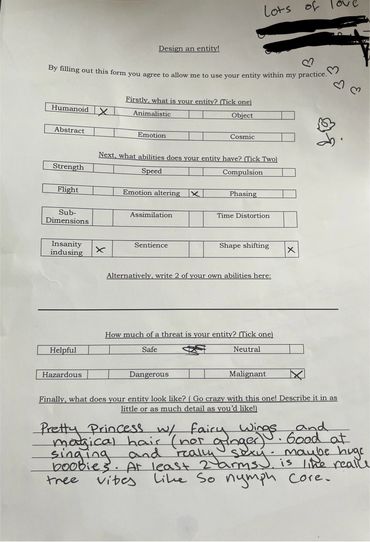 Lots of love
Design an entity!
By filling out this form you agree to allow me to use your entity within my practice.
Firstly, what is your entity? (Tick one)
Humanoid X Animalistic Object
Abstract Emotion Cosmic
Next, what abilities does your entity have? (Tick Two)
Strength Speed Compulsion
Flight Emotion altering X Phasing
Sub-
Dimensions Assimilation Time Distortion
Insanity
indusing X Sentience Shape shifting X
Alternatively, write 2 of your own abilities here:
How much of a threat is your entity? (Tick one)
Helpful Safe Neutral
Hazardous Dangerous Malignant X
Finally, what does your entity look like? ( Go crazy with this one! Describe it in as
little or as much detail as you'd like!)
Pretty Princess w/ fairy wings and
magical hair (not ginger). Good at
singing and really sexy. maybe huge
boobies. At least 2 arms. is like really
tree vibes like so nymph core.